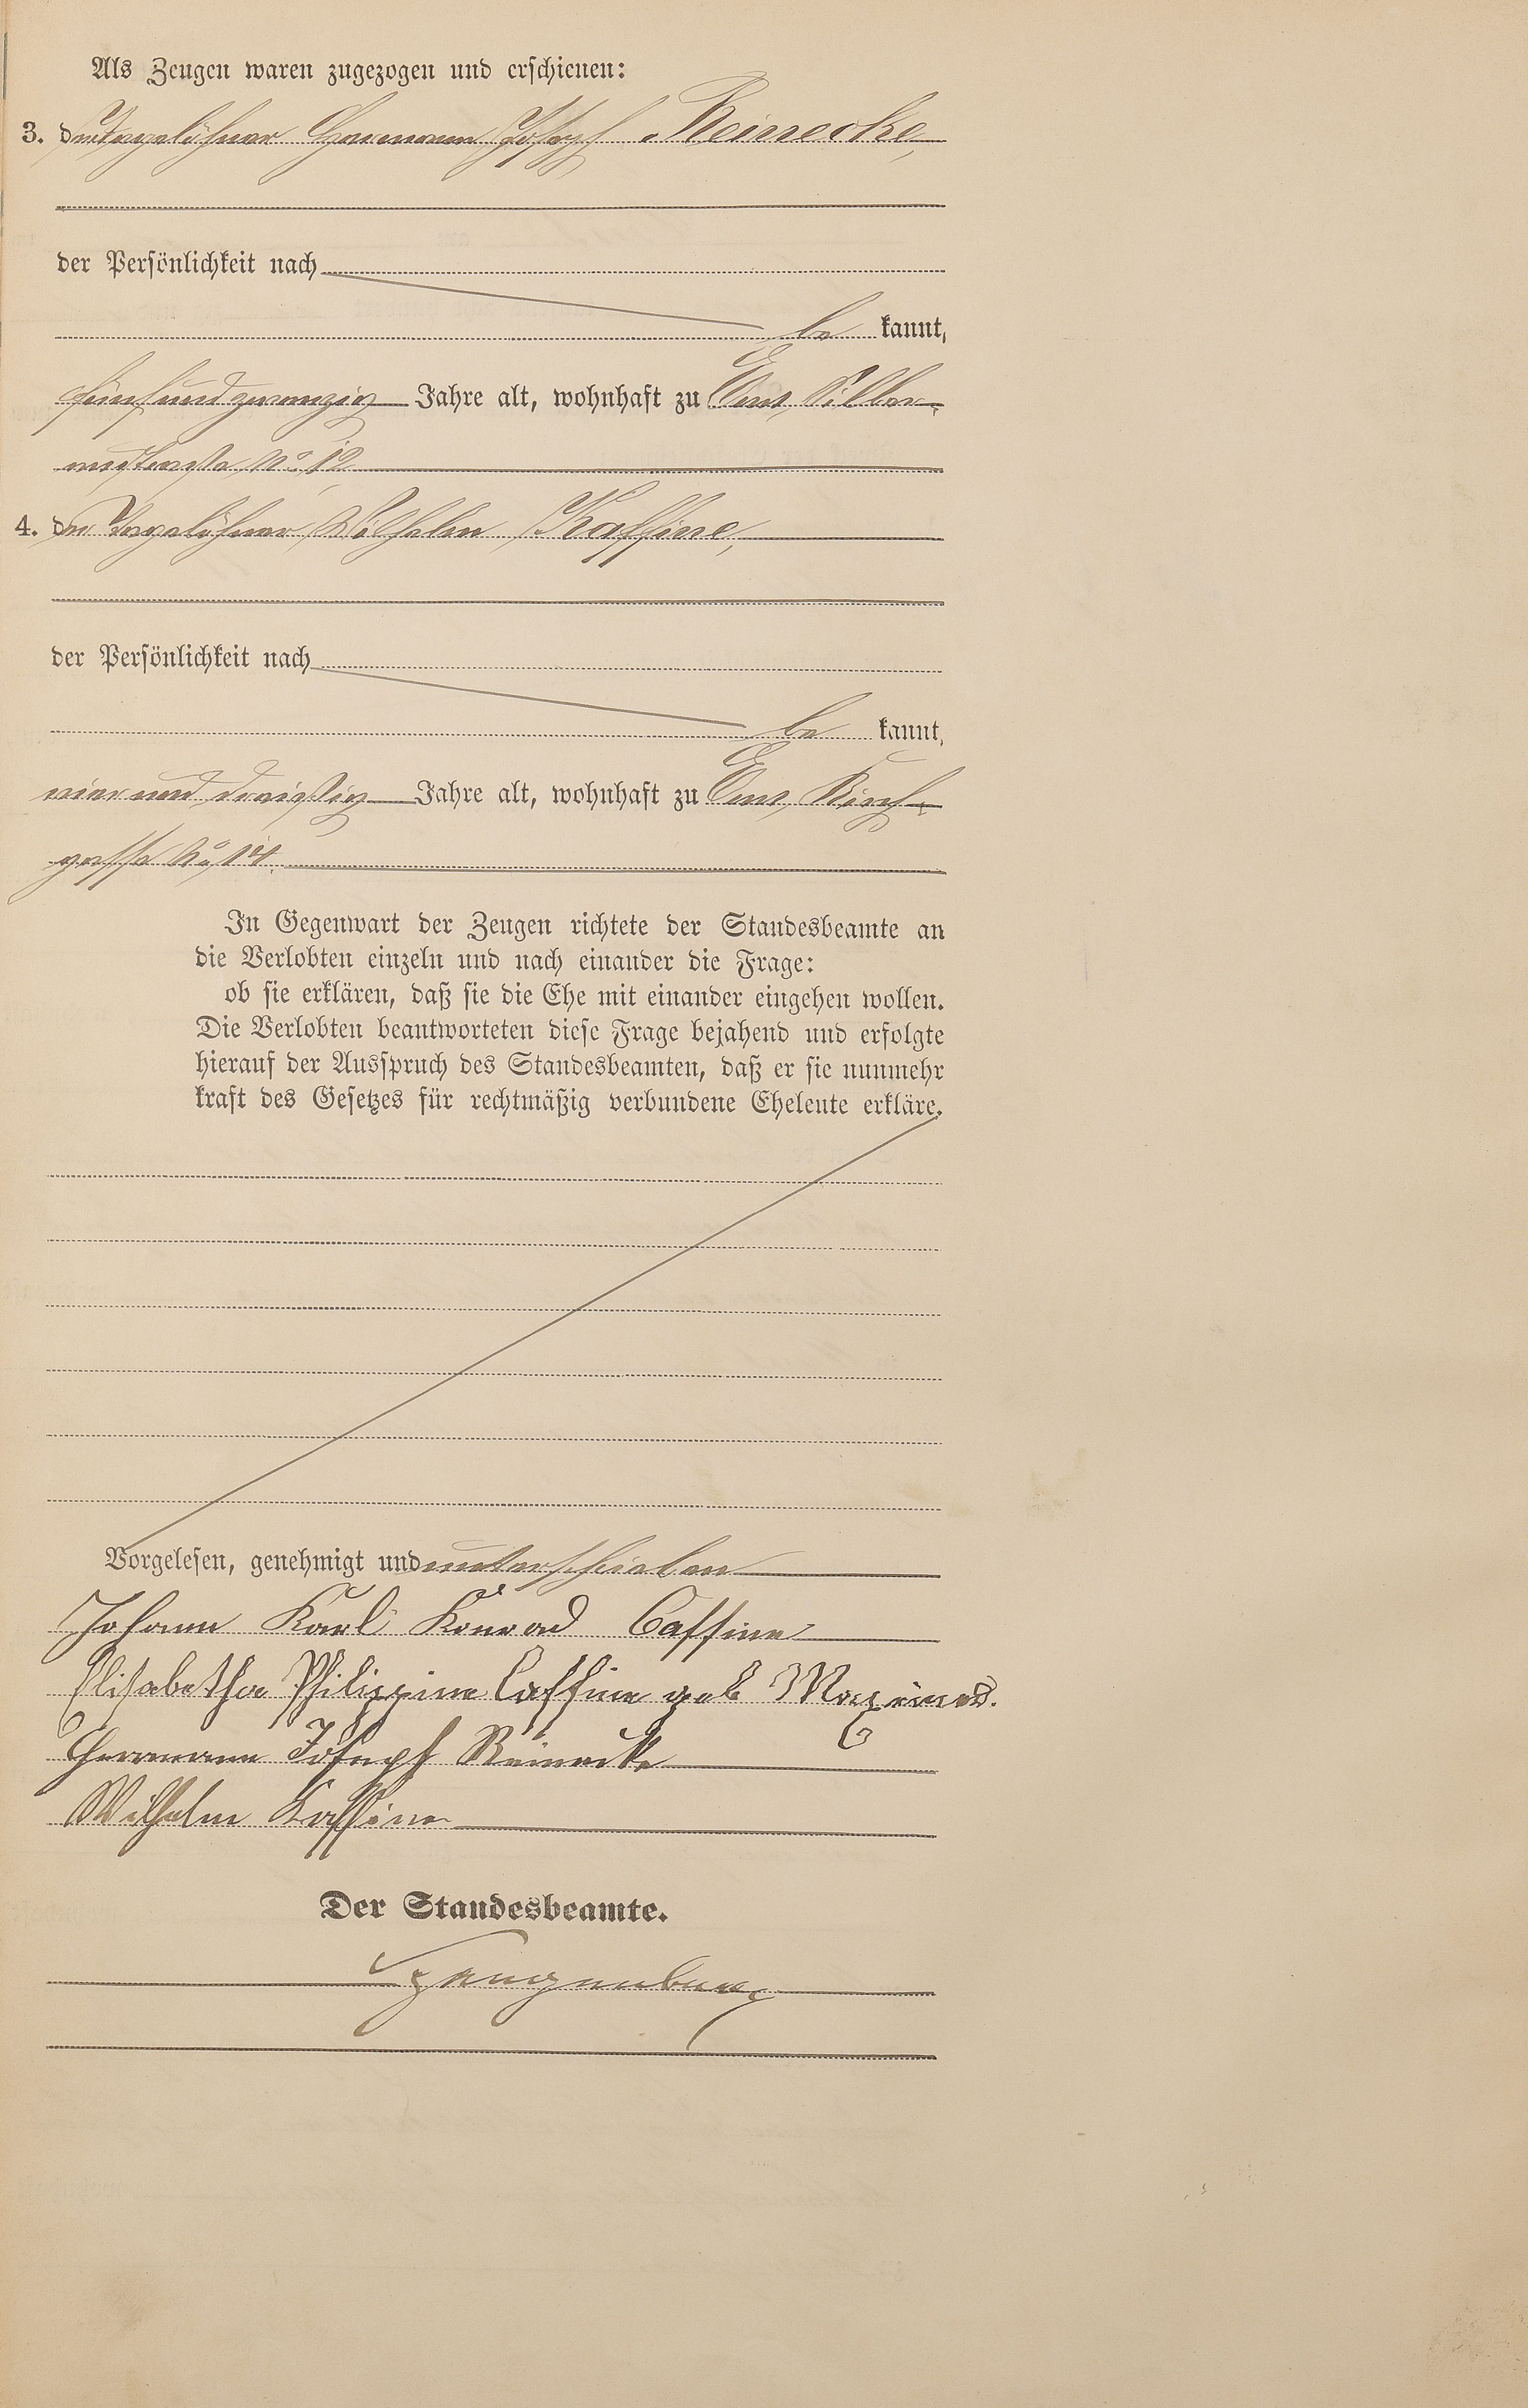 Als Zeugen waren zugezogen und erschienen:
3. der Tagelöhner Hermann Joseph Reinecke,
der Persönlichkeit nach
be kannt,
fünfundzwanzig Jahre alt, wohnhaft zu Ems, Silber-
austraße No. 12
4. der Tagelöhner Wilhelm Kaffine,
der Persönlichkeit nach
be kannt,
vier und dreißig Jahre alt, wohnhaft zu Ems, Kirch-
gasse No. 14.
In Gegenwart der Zeugen richtete der Standesbeamte an
die Verlobten einzeln und nach einander die Frage:
ob sie erklären, daß sie die Ehe mit einander eingehen wollen.
Die Verlobten beantworteten diese Frage bejahend und erfolgte
hierauf der Ausspruch des Standesbeamten, daß er sie nunmehr
kraft des Gesetzes für rechtmäßig verbundene Eheleute erkläre.
Vorgelesen, genehmigt und unterschrieben
Johann Karl Konrad Caffine
Elisabetha Philippine Caffine geb
Hermann Joseph Reinecke
Wilhelm Kaffine
Der Standesbeamte.